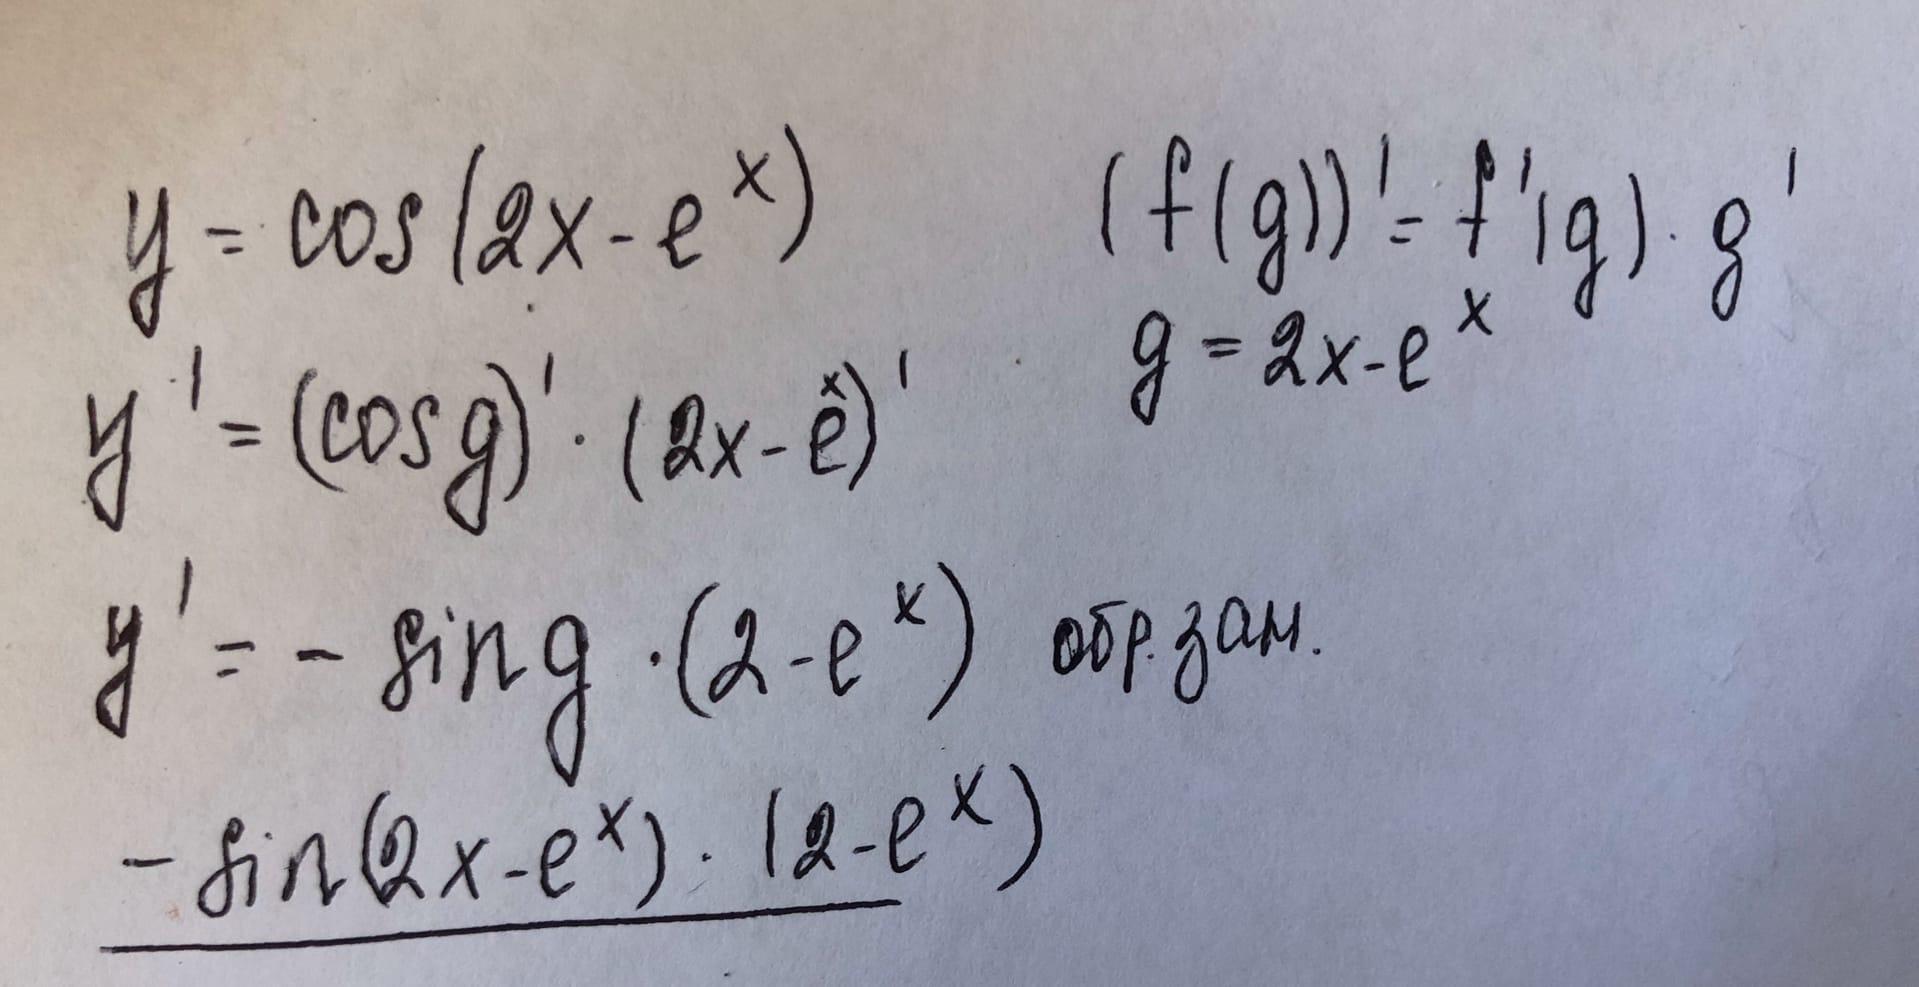 y = cos(2x-e^x)
(f(g))' = f'(g) · g'
g = 2x-e^x
y' = (cos g)' · (2x-e^x)'
y' = - sin g · (2-e^x) обр. зам.
- sin(2x-e^x) · (2-e^x)